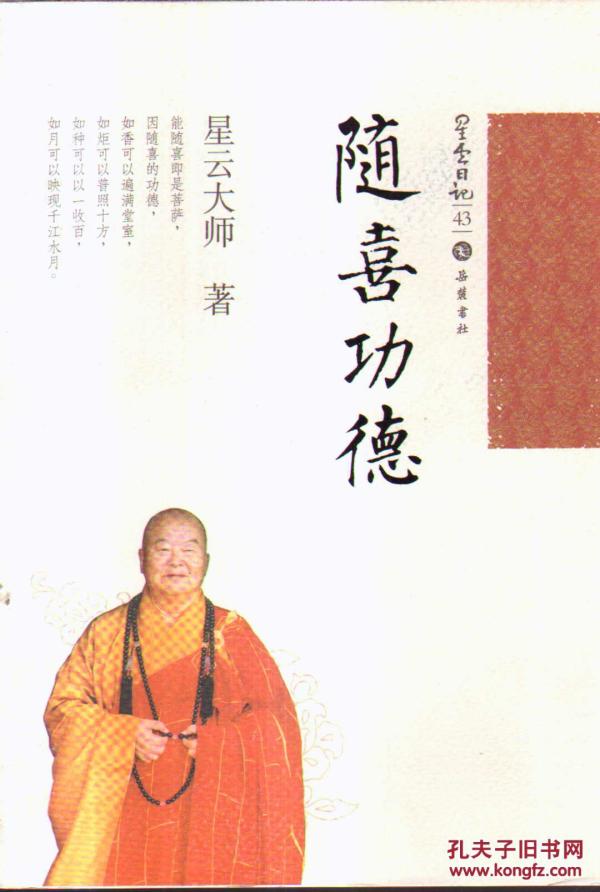 星雲日记
43
岳麓書社
隨喜功德
星云大师 著
能随喜即是菩萨，
因随喜的功德，
如香可以遍满堂室，
如炬可以普照十方，
如种可以以一收百，
如月可以映现千江水月。
孔夫子旧书网
www.kongfz.com